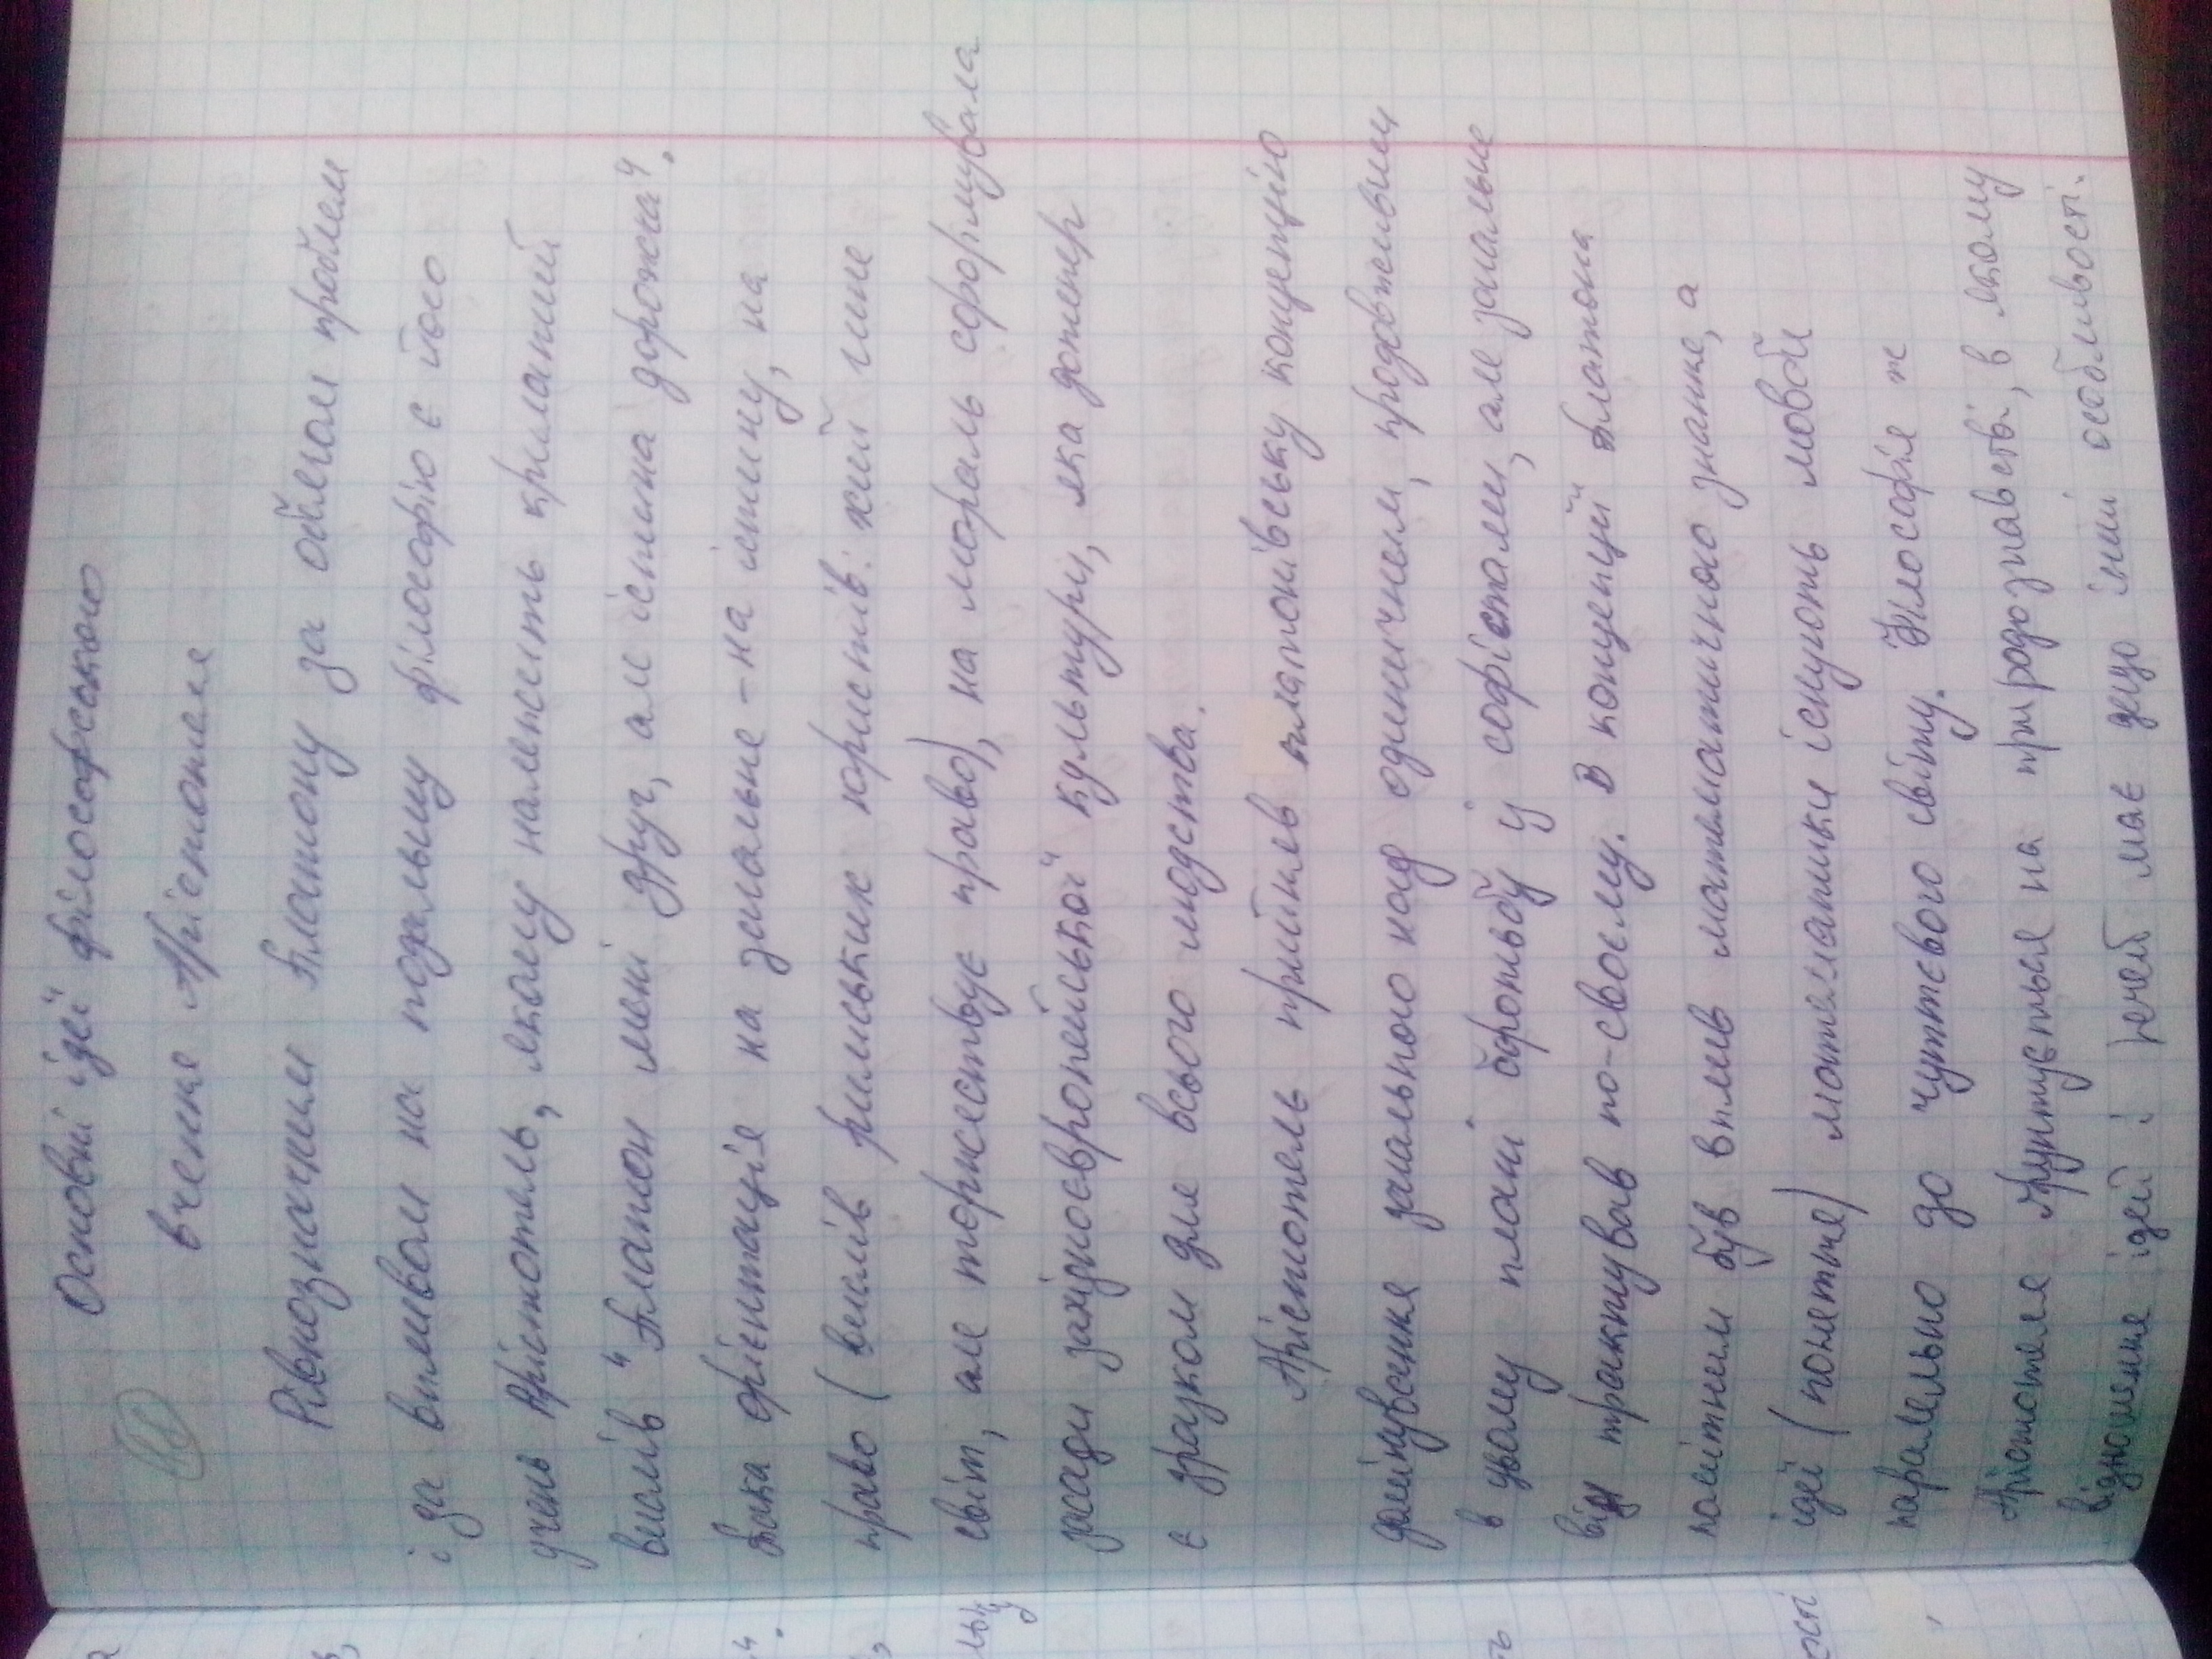 Основні ідеї філософського
вчення Арістотеля
Рівнозначним Платону за обсягом проблем
і за впливом на подальшу філософію є його
учень Арістотель, якому належить крилатий
вислів "Платон мені друг, але істина дорожча".
Така орієнтація на загальне - на істину, на
право (вислів римських юристів: хай гине
світ, але торжествує право), на мораль сформувала
засади західноєвропейської культури, яка донепер
є зразком для всього людства.
Арістотель прийняв платонівську концепцію
домінування загального над одиничним, продовживши
в цьому плані боротьбу із софістами, але загальне
він трактував по-своєму. В концепції Платона
помітним був вплив математичного знання, а
ідеї (поняття) математики існують мовби
паралельно до чуттєвого світу. Філософія ж
Арістотеля ґрунтується на природознавстві, в якому
відношення ідей і речей має дещо інші особливості.